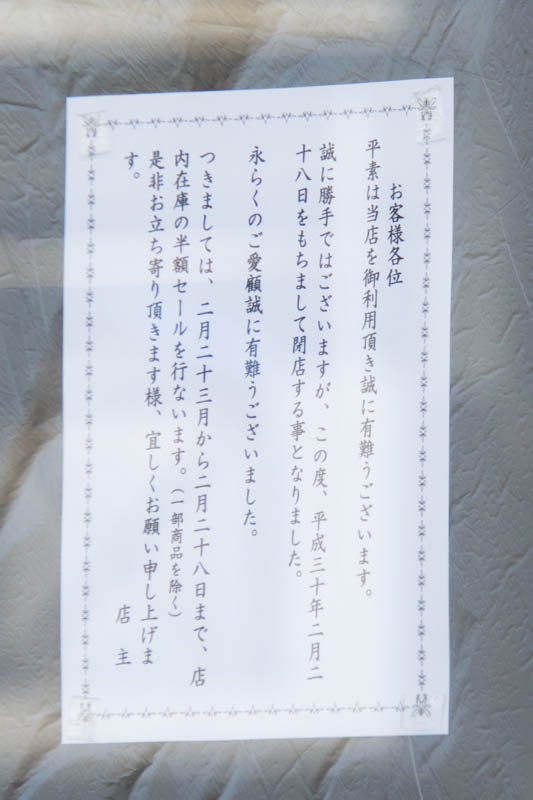 お客様各位
平素は当店を御利用頂き誠に有難うございます。
誠に勝手ではございますが、この度、平成三十年二月二
十八日をもちまして閉店する事となりました。
永らくのご愛顧誠に有難うございました。
つきましては、二月二十三月から二月二十八日まで、店
内在庫の半額セールを行ないます。（一部商品を除く）
是非お立ち寄り頂きます様、宜しくお願い申し上げま
す。
店主